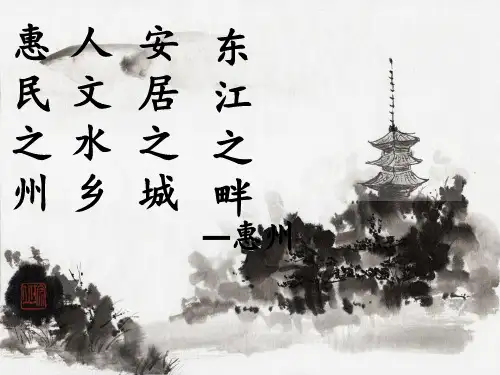 东江之畔
安居之城
人文水乡
惠民之州
—惠州